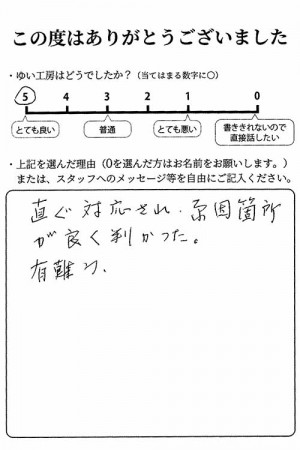 この度はありがとうございました
・ゆい工房はどうでしたか？（当てはまる数字に○）
5 4 3 2 1 0
とても良い 普通 とても悪い 書ききれないので直接話したい
・上記を選んだ理由（0を選んだ方はお名前をお願いします。）
または、スタッフへのメッセージ等を自由にご記入ください。
直ぐ対応され、原因箇所
が良く判かった。
有難う、